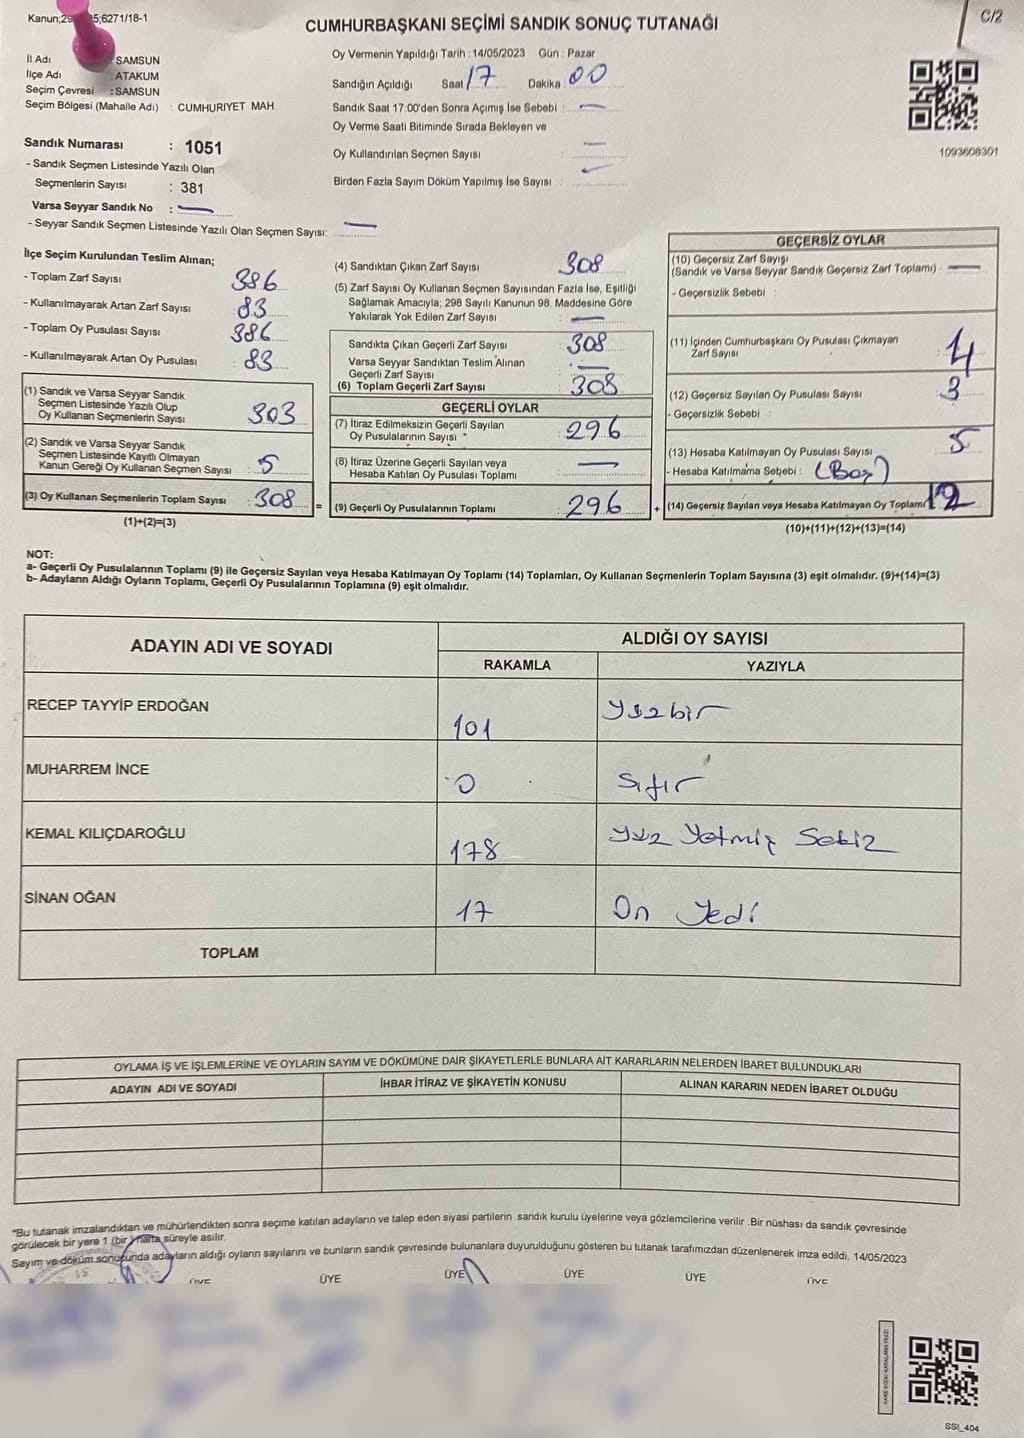 C/2
CUMHURBAŞKANI SEÇİMİ SANDIK SONUÇ TUTANAĞI
İl Adı : SAMSUN
İlçe Adı : ATAKUM
Seçim Çevresi : SAMSUN
Seçim Bölgesi (Mahalle Adı) : CUMHURIYET MAH.
Sandık Numarası : 1051
- Sandık Seçmen Listesinde Yazılı Olan
Seçmenlerin Sayısı : 381
Varsa Seyyar Sandık No : —
- Seyyar Sandık Seçmen Listesinde Yazılı Olan Seçmen Sayısı: —
Oy Vermenin Yapıldığı Tarih : 14/05/2023 Gün : Pazar
Sandığın Açıldığı Saat 17 Dakika : 00
Sandık Saat 17:00'den Sonra Açımış İse Sebebi : —
Oy Verme Saati Bitiminde Sırada Bekleyen ve
Oy Kullandırılan Seçmen Sayısı : —
Birden Fazla Sayım Döküm Yapılmış İse Sayısı : —
1093608301
İlçe Seçim Kurulundan Teslim Alınan;
- Toplam Zarf Sayısı : 386
- Kullanılmayarak Artan Zarf Sayısı : 83
- Toplam Oy Pusulası Sayısı : 386
- Kullanılmayarak Artan Oy Pusulası : 83
(1) Sandık ve Varsa Seyyar Sandık
Seçmen Listesinde Yazılı Olup
Oy Kullanan Seçmenlerin Sayısı : 303
(2) Sandık ve Varsa Seyyar Sandık
Seçmen Listesinde Kayıtlı Olmayan
Kanun Gereği Oy Kullanan Seçmen Sayısı : 5
(3) Oy Kullanan Seçmenlerin Toplam Sayısı : 308 =
(1)+(2)=(3)
(4) Sandıktan Çıkan Zarf Sayısı : 308
(5) Zarf Sayısı Oy Kullanan Seçmen Sayısından Fazla İse, Eşitliği
Sağlamak Amacıyla; 298 Sayılı Kanunun 98. Maddesine Göre
Yakılarak Yok Edilen Zarf Sayısı : —
Sandıkta Çıkan Geçerli Zarf Sayısı : 308
Varsa Seyyar Sandıktan Teslim Alınan
Geçerli Zarf Sayısı : —
(6) Toplam Geçerli Zarf Sayısı : 308
GEÇERLİ OYLAR
(7) İtiraz Edilmeksizin Geçerli Sayılan
Oy Pusulalarının Sayısı : 296
(8) İtiraz Üzerine Geçerli Sayılan veya
Hesaba Katılan Oy Pusulası Toplamı : —
(9) Geçerli Oy Pusulalarının Toplamı : 296 +
GEÇERSİZ OYLAR
(10) Geçersiz Zarf Sayışı
(Sandık ve Varsa Seyyar Sandık Geçersiz Zarf Toplamı) : —
- Geçersizlik Sebebi :
(11) İçinden Cumhurbaşkanı Oy Pusulası Çıkmayan
Zarf Sayısı : 4
(12) Geçersiz Sayılan Oy Pusulası Sayısı : 3
- Geçersizlik Sebebi :
(13) Hesaba Katılmayan Oy Pusulası Sayısı : 5
- Hesaba Katılmama Sebebi : (Boş)
(14) Geçersiz Sayılan veya Hesaba Katılmayan Oy Toplamı 12
(10)+(11)+(12)+(13)=(14)
NOT:
a- Geçerli Oy Pusulalarının Toplamı (9) ile Geçersiz Sayılan veya Hesaba Katılmayan Oy Toplamı (14) Toplamları, Oy Kullanan Seçmenlerin Toplam Sayısına (3) eşit olmalıdır. (9)+(14)=(3)
b- Adayların Aldığı Oyların Toplamı, Geçerli Oy Pusulalarının Toplamına (9) eşit olmalıdır.
ADAYIN ADI VE SOYADI ALDIĞI OY SAYISI
RAKAMLA YAZIYLA
RECEP TAYYİP ERDOĞAN 101 Yüzbir
MUHARREM İNCE 0 Sıfır
KEMAL KILIÇDAROĞLU 178 Yüz Yetmiş Sekiz
SİNAN OĞAN 17 On Yedi
TOPLAM
OYLAMA İŞ VE İŞLEMLERİNE VE OYLARIN SAYIM VE DÖKÜMÜNE DAİR ŞİKAYETLERLE BUNLARA AİT KARARLARIN NELERDEN İBARET BULUNDUKLARI
ADAYIN ADI VE SOYADI İHBAR İTİRAZ VE ŞİKAYETİN KONUSU ALINAN KARARIN NEDEN İBARET OLDUĞU
*Bu tutanak imzalandıktan ve mühürlendikten sonra seçime katılan adayların ve talep eden siyasi partilerin sandık kurulu üyelerine veya gözlemcilerine verilir .Bir nüshası da sandık çevresinde
görülecek bir yere 1 (bir) hafta süreyle asılır.
Sayım ve döküm sonucunda adayların aldığı oyların sayılarını ve bunların sandık çevresinde bulunanlara duyurulduğunu gösteren bu tutanak tarafımızdan düzenlenerek imza edildi. 14/05/2023
ÜYE ÜYE ÜYE ÜYE ÜYE ÜYE
SSI_404